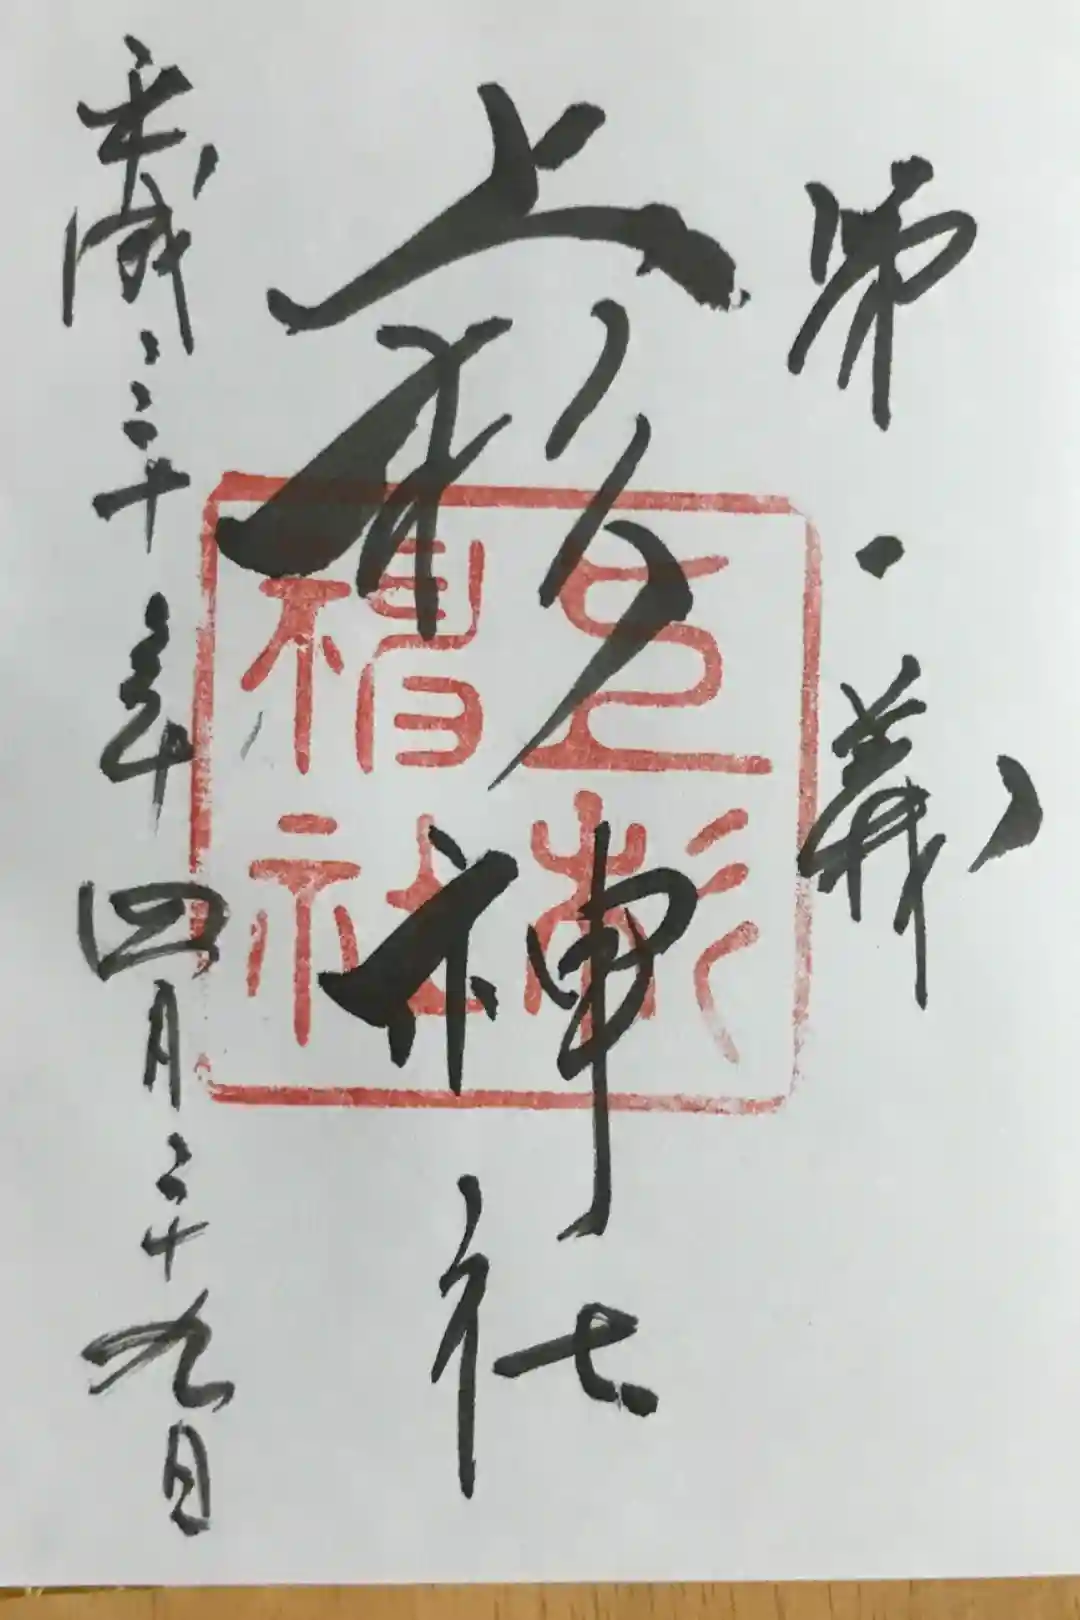 第一義
上杉神社
上杉神社
平成三十年四月二十九日